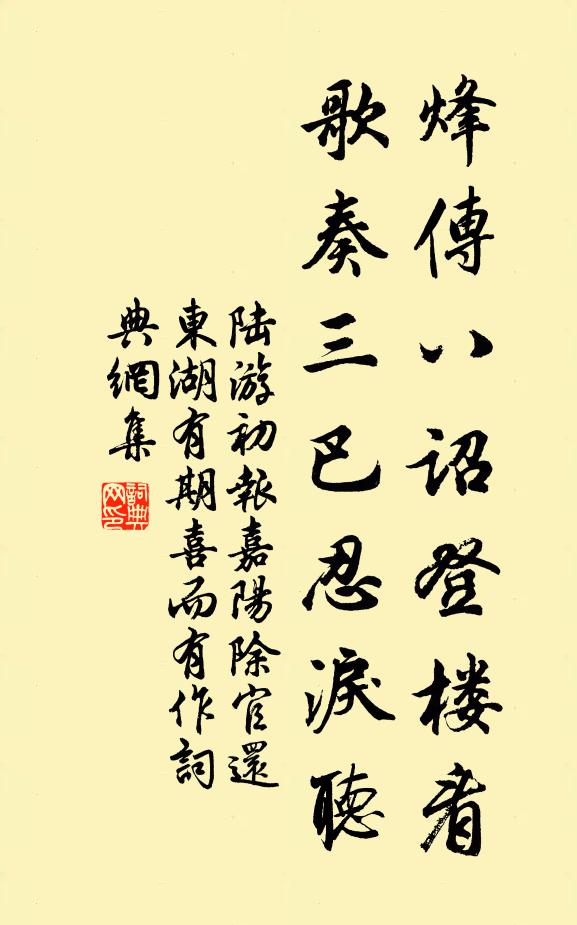 烽傳八詔登楼看
歌奏三巴忍淚聽
陆游初報嘉陽除官還
東湖有期喜而有作詞
典網集
詞典网印